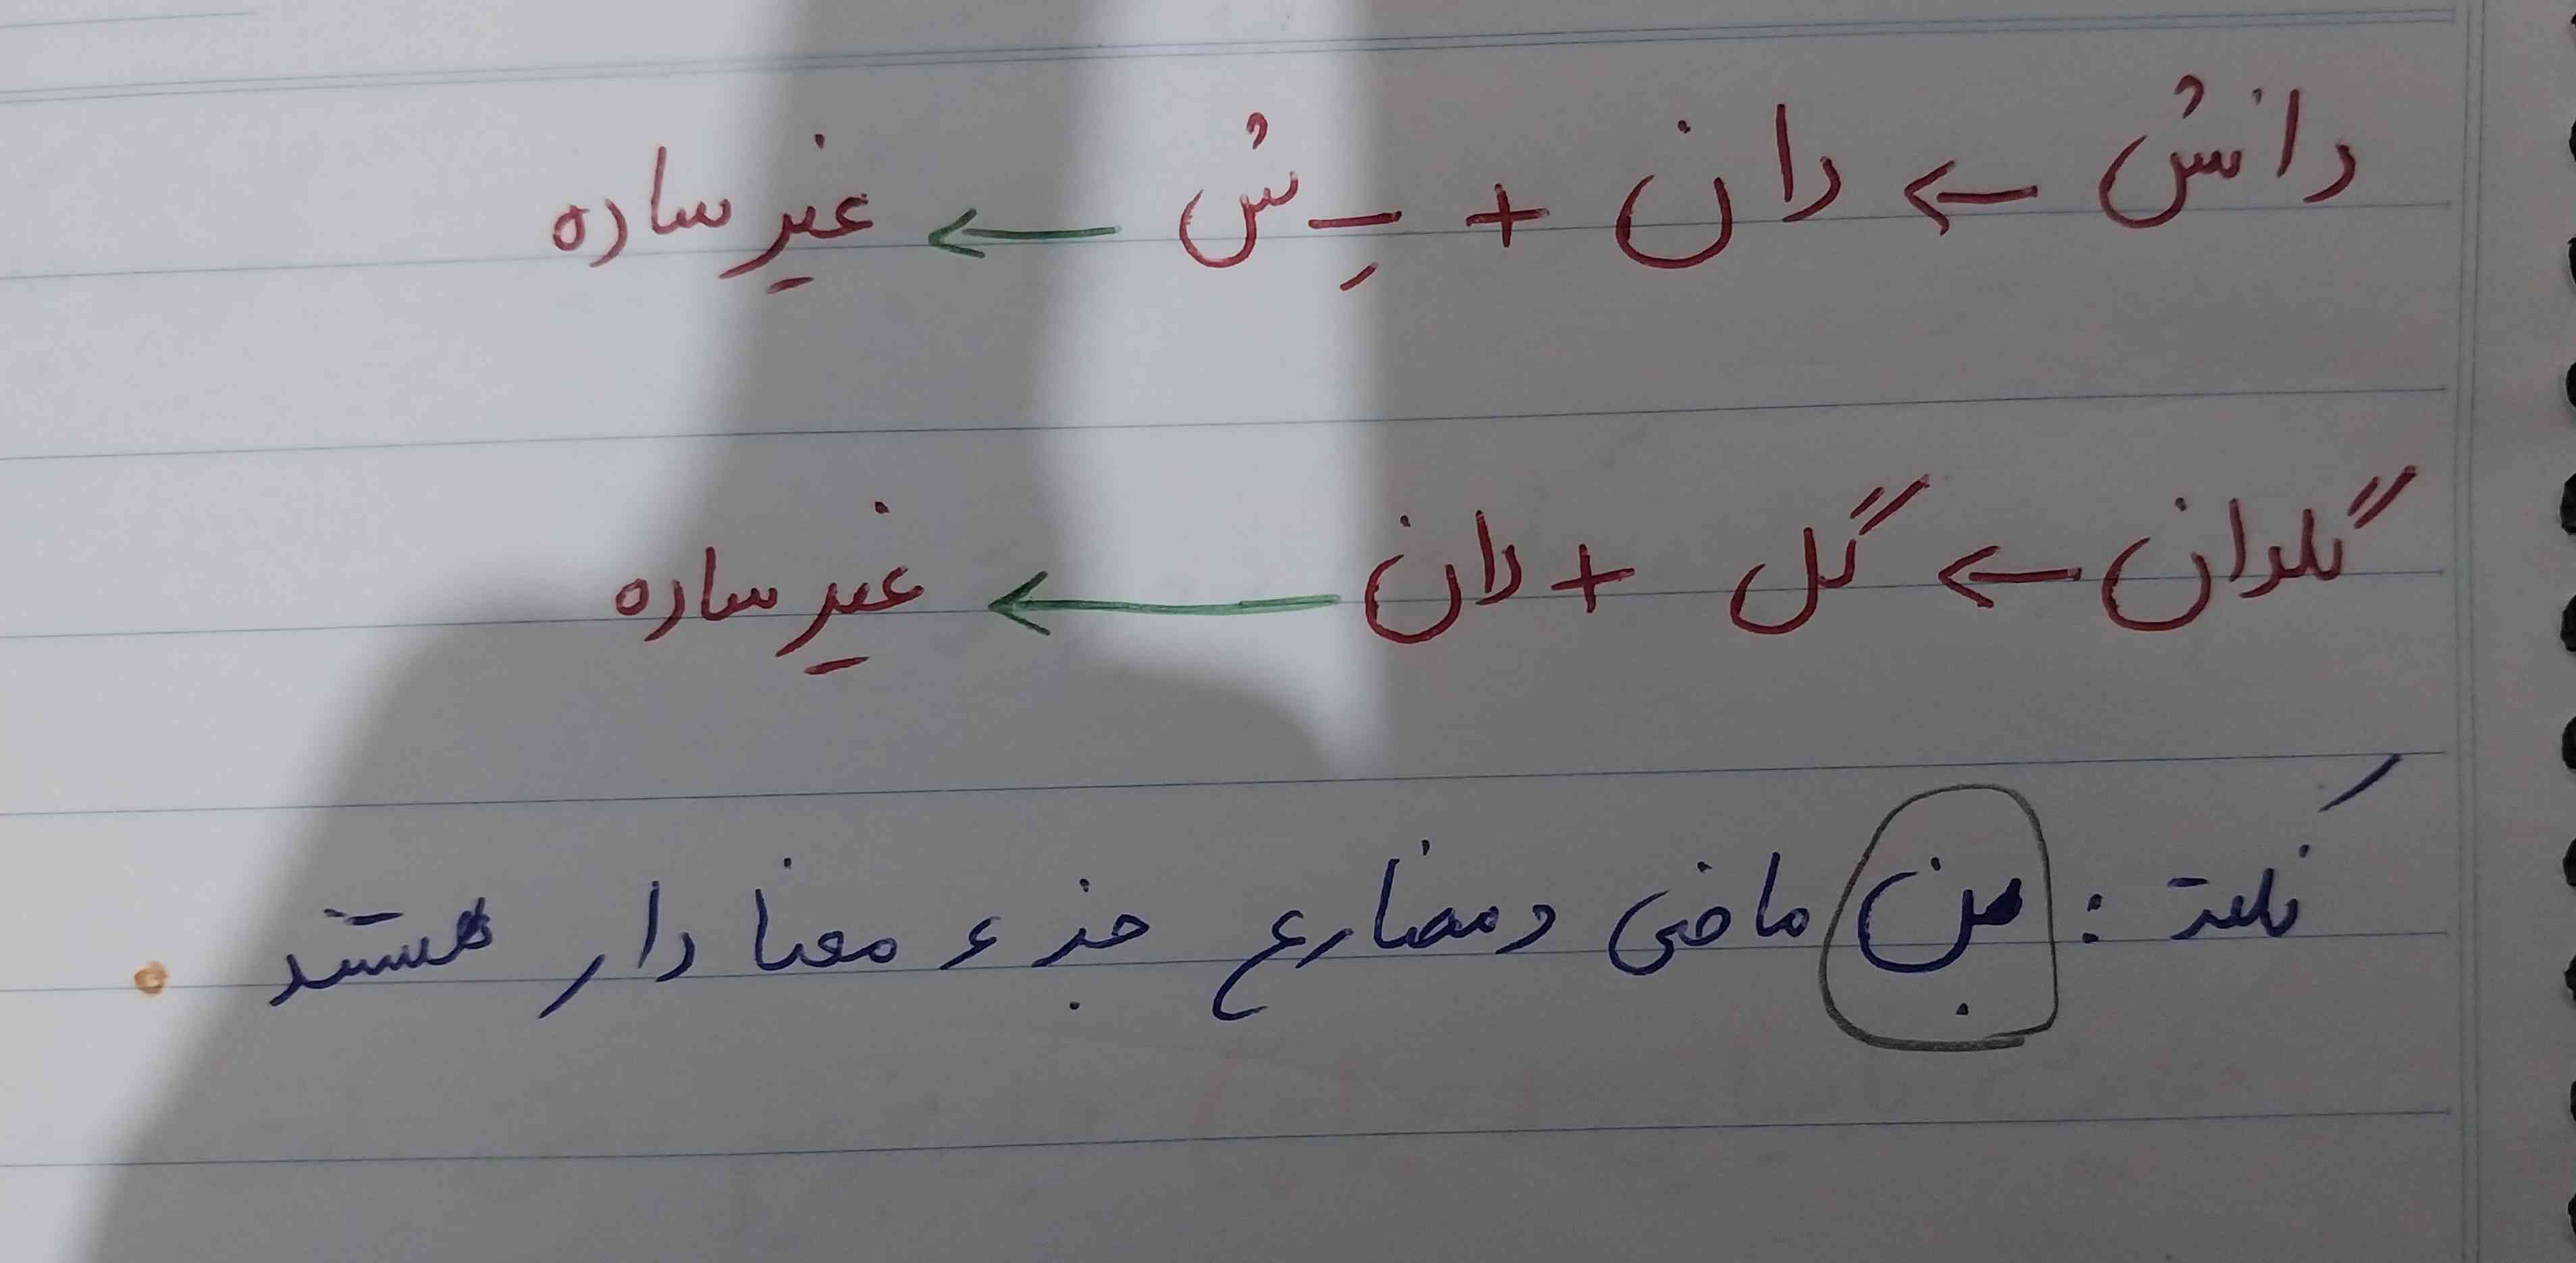 دانش ← دان + ـِ ش ← غیر ساده
گلدان ← گل + دان ← غیر ساده
نکته : بن ماضی و مضارع جزء معنا دار هستند .